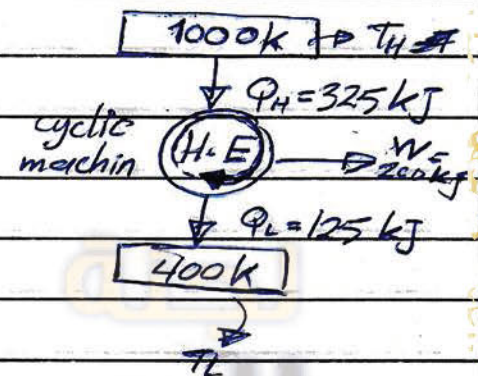 1000k → TH
QH = 325 kJ
cyclic machin
H.E
W = 200 kJ
QL = 125 kJ
400k
TL